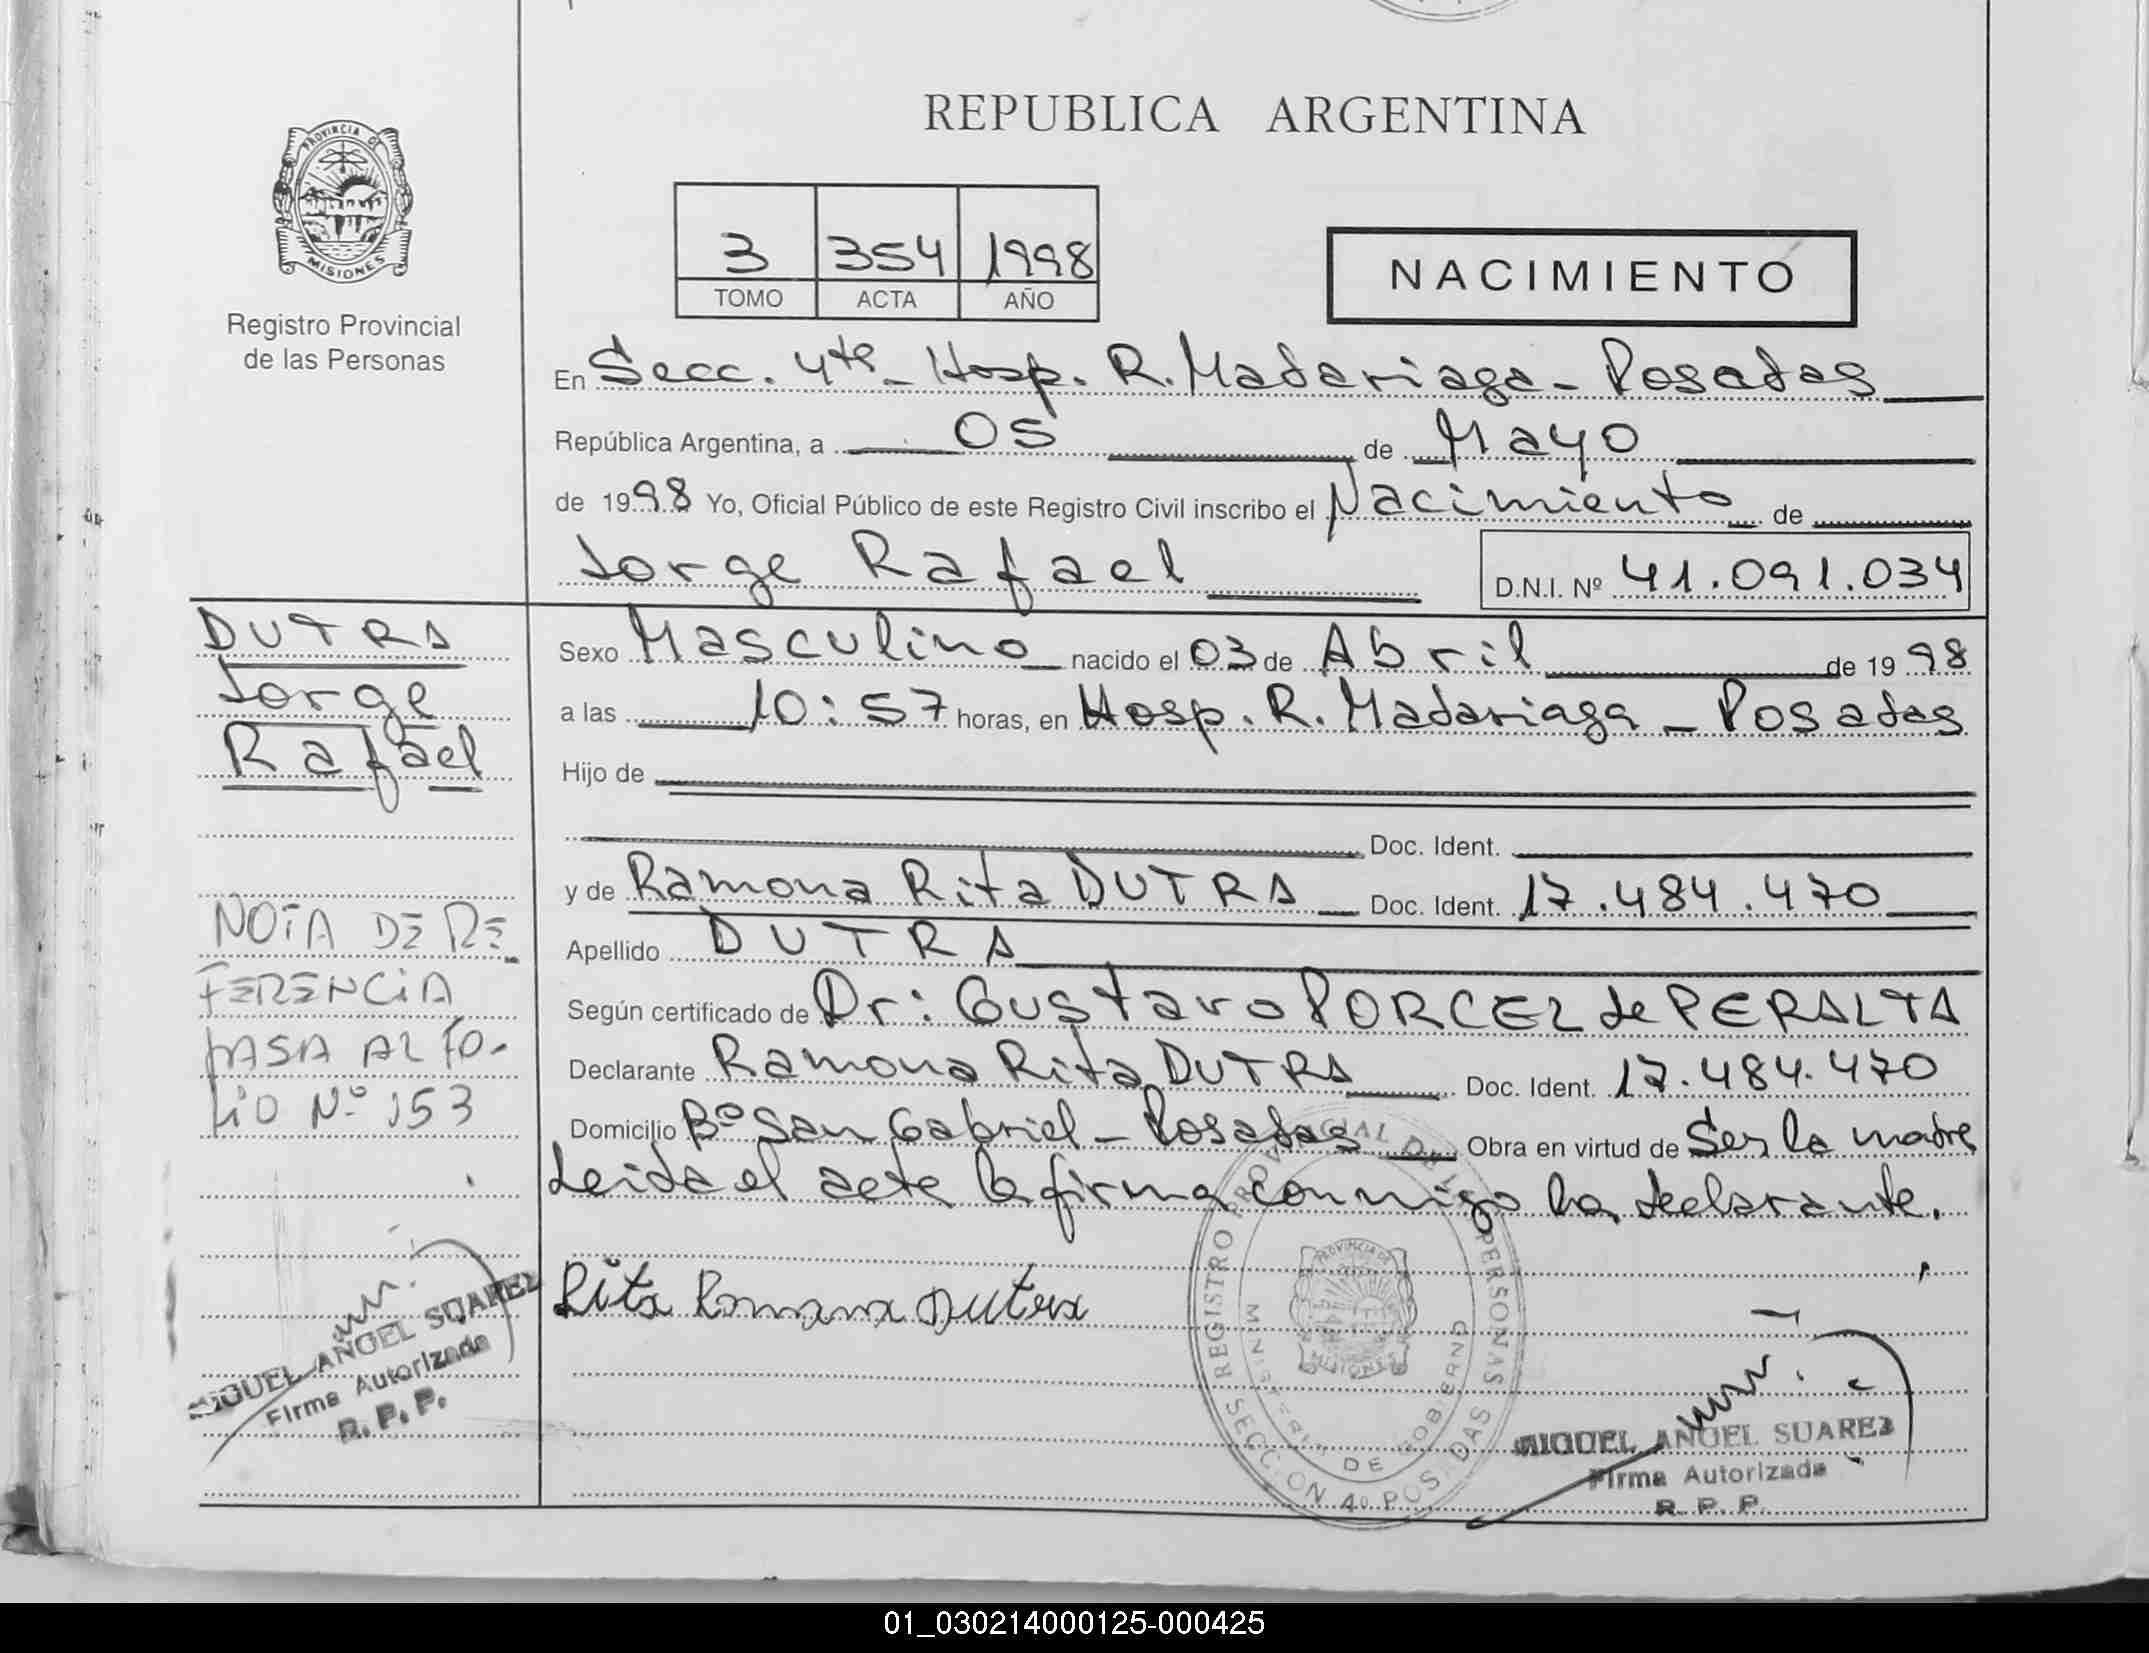 REPUBLICA ARGENTINA
PROVINCIA DE
MISIONES
Registro Provincial
de las Personas
3 354 1998
TOMO ACTA AÑO
NACIMIENTO
En Secc. 4ta - Hosp. R. Madariaga - Posadas
República Argentina, a 05 de Mayo
de 1998 Yo, Oficial Público de este Registro Civil inscribo el Nacimiento de
Jorge Rafael D.N.I. Nº 41.091.034
DUTRA
Jorge
Rafael
Sexo Masculino nacido el 03 de Abril de 1998
a las 10:57 horas, en Hosp. R. Madariaga - Posadas
Hijo de
Doc. Ident.
y de Ramona Rita DUTRA Doc. Ident. 17.484.470
Apellido DUTRA
Según certificado de Dr: Gustavo PORCEL de PERALTA
Declarante Ramona Rita DUTRA Doc. Ident. 17.484.470
Domicilio Bº San Gabriel - Posadas Obra en virtud de Ser la madre
Leida el acta la firma conmigo la declarante.
NOTA DE RE-
FERENCIA
PASA AL FO-
LIO Nº 153
Rita Romana Dutra
MIGUEL ANGEL SUAREZ
Firma Autorizada
R. P. P.
REGISTRO PROVINCIAL DE LAS PERSONAS
SECCION 4º POSADAS
MINISTERIO DE GOBIERNO
PROVINCIA DE
MISIONES
MIGUEL ANGEL SUAREZ
Firma Autorizada
R. P. P.
01_030214000125-000425